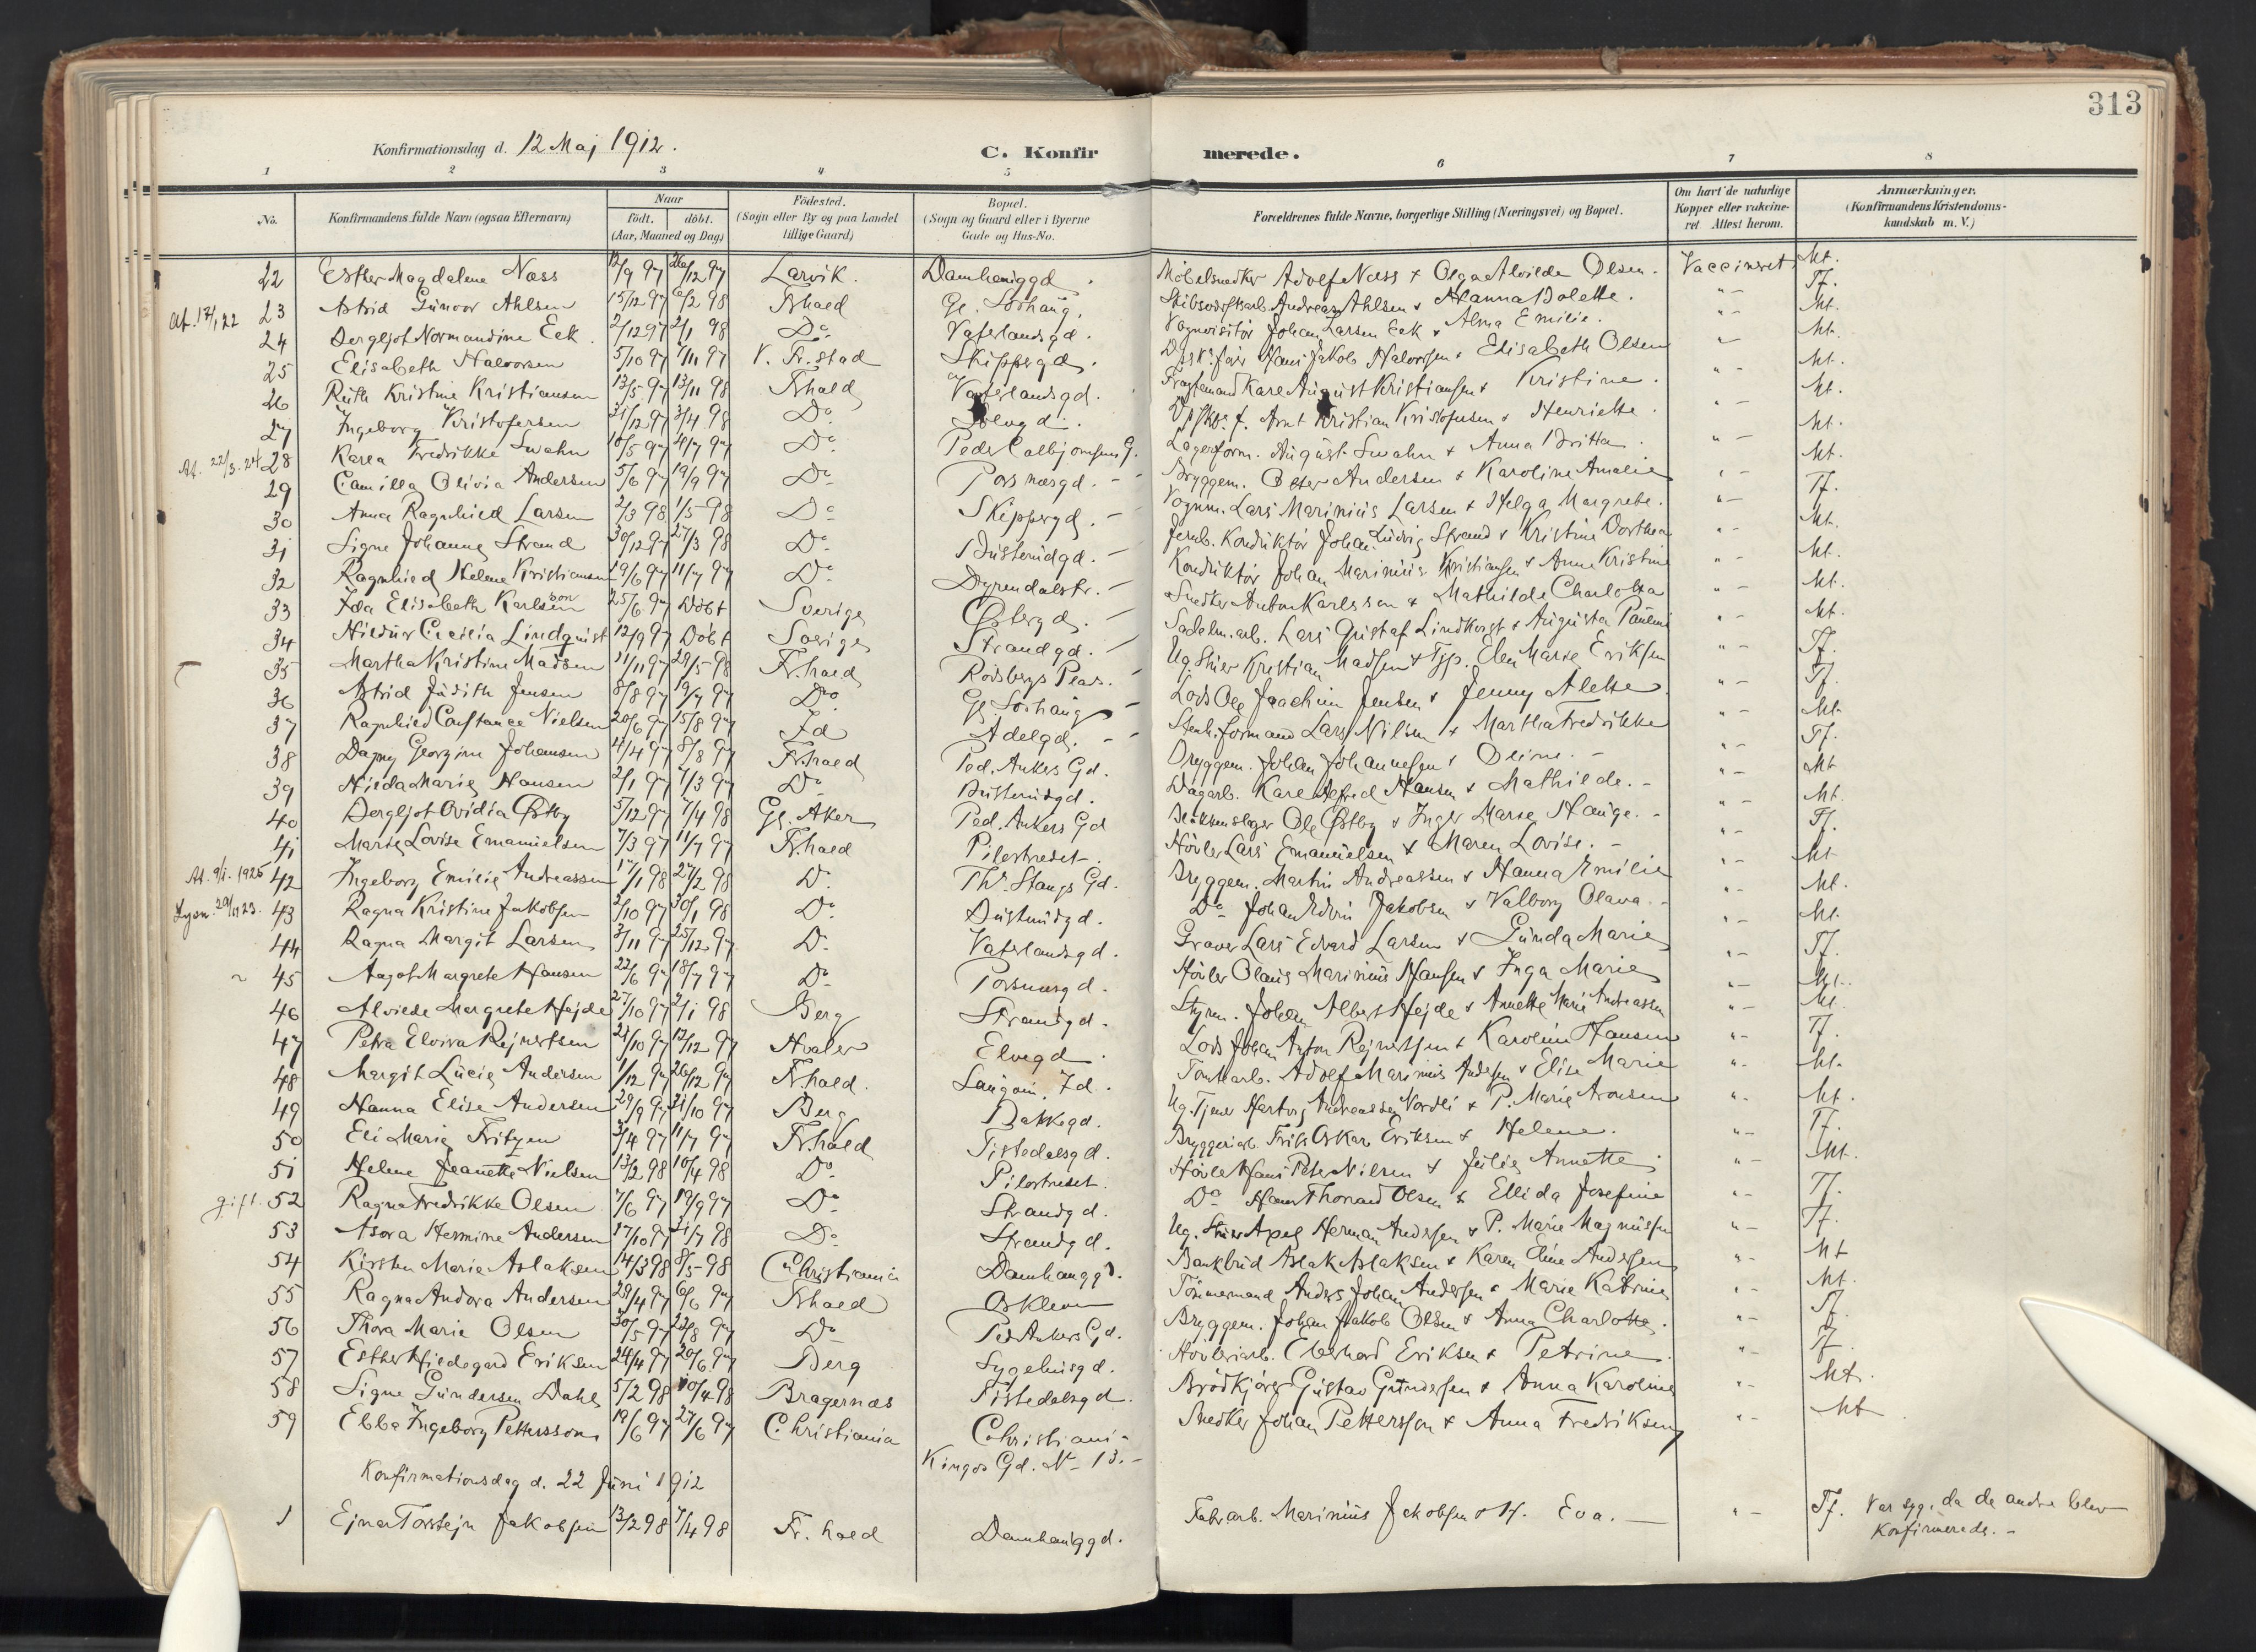 313
Konfirmationsdag d. 12 Maj 1912.
C. Konfirmerede.
1 2 3 4 5 6 7 8
No. Konfirmandens fulde Navn (ogsaa Efternavn) Naar født. døbt. (Aar, Maaned og Dag) Födested. (Sogn eller By og paa Landet tillige Gaard) Bopæl. (Sogn og Gaard eller i Byerne Gade og Hus-No. Forældrenes fulde Navne, borgerlige Stilling (Næringsvei) og Bopæl. Om havt de naturlige Kopper eller vakcineret Attest herom. Anmærkninger. (Konfirmandens Kristendomskundskab m. V.)
22 Esther Magdalene Næss 12/9 97 26/12 97 Larvik. Damhauggd. Möbelsnedker Adolf Næss & Olga Alvilde Olsen. Vaccineret Mt.
At. 17/1 22 23 Astrid Gunvor Ahlsen 15/12 97 6/2 98 Frhald Gl. Sörhaug. Andreas Ahlsen & Hanna Bolette. " - Tf.
24 Bergljot Normandine Eek. 2/12 97 2/1 98 Do Vaterlandsgd. Vognvisitör Johan Larsen Eek & Alma Emilie. " - Mt.
25 Elisabeth Halvorsen 5/10 97 7/11 97 V. Fr.stad Skippergd. Hans Jakob Halvorsen & Elisabeth Olsen " - Mt.
26 Ruth Kristine Kristiansen 13/5 97 13/11 98 Frhald Vaterlandsgd. Karl August Kristiansen & Kristine. " - Mt.
27 Ingeborg Kristofersen 31/12 97 3/4 98 Do Elvegd. Arnt Kristian Kristofersen & Henriette. " - Mt.
At. 22/3. 24 28 Karla Fredrikke Swahn 18/5 97 4/7 97 Do Peder Colbjørnsens G. Lagerform. August Swahn & Anna Britta. " - Mt.
29 Camilla Olivia Andersen 5/6 97 19/9 97 Do Porsnæsgd. - Bryggem. Oscar Andersen & Karoline Amalie " - Mt.
30 Anna Ragnhild Larsen 2/3 98 1/5 98 Do Skippergd. - Vognm. Lars Marinius Larsen & Helga Margrete. " - Tf.
31 Signe Johanne Strand 30/12 97 27/3 98 Do Busterudgd. - Jernb. Konduktör Johan Ludvig Strand & Kristine Dorthea " - Mt.
32 Ragnhild Helene Kristiansen 19/6 97 11/7 97 Do Dyrendalstr. - Konduktör Johan Marinius Kristiansen & Anne Kristine " - Mt.
33 Ida Elisabeth Karlsson 25/6 97 Döbt Sverige Østbygd. - Snedker Anton Karlsson & Mathilde Charlotta " - Mt.
34 Hildur Cecilia Lindquist 12/9 97 Döbt Sverige Strandgd. - Sadelm. arb. Lars Gustaf Lindkvist & Augusta Pauline " - Mt.
35 Martha Kristine Madsen 11/11 97 29/5 98 Fr.hald Rödsbergs Plads. - Ug. Kristian Madsen & Tjp. Elen Marie Eriksen " - Tf.
36 Astrid Judith Jensen 8/8 97 19/9 97 Do Gl. Sörhaug - Lods Ole Joachim Jensen & Jenny Alette. " - Tf.
37 Ragnhild Constance Nielsen 20/6 97 15/8 97 Id Adelgd. - Stenh. formand Lars Nilsen & Martha Fredrikke " - Mt.
38 Dagny Georgine Johansen 4/4 97 8/8 97 Fr.hald Ped. Ankers Gd. Bryggem. Johan Johannesen & Oline. - " - Tf.
39 Hilda Marie Hansen 2/1 97 7/3 97 Do Busterudgd. Dagarb. Karl Alfred Hansen & Mathilde. - " - Mt
40 Bergljot Ovidia Østby 5/12 97 7/4 98 Gl. Aker Ped. Ankers Gd Blikkenslager Ole Østby & Inger Marie Hauge. - " - Mt.
41 Marie Lovise Emanuelsen 7/3 97 11/7 97 Fr.hald Pilestredet. Hövler Lars Emanuelsen & Maren Lovise. - " - Tf.
At. 9/1. 1925 42 Ingeborg Emilie Andreassen 17/1 98 27/2 98 Do Ths. Stangs Gd. Bryggem. Martin Andreassen & Hanna Emilie " - Mt
Lysn. 29/11 23. 43 Ragna Kristine Jakobsen 2/10 97 30/1 98 Do Busterudgd. Do Johan Edvin Jakobsen & Valborg Olava. - " - Mt.
44 Ragna Margit Larsen 3/11 97 25/12 97 Do Vaterlandsgd. Graver Lars Edvard Larsen & Gunda Marie " - Mt.
45 Aagot Margrete Hansen 22/6 97 18/7 97 Do Porsnæsgd. Hövler Olaus Marinius Hansen & Inga Marie " - Tf.
46 Alvilde Margrete Hejde 27/10 97 2/1 98 Berg Strandgd. Styrm. Johan Albert Hejde & Annette Marie Andreassen " - Mt.
47 Petra Elvira Rejnertsen 21/10 97 12/12 97 Hvaler Elvegd. Lods Johan Anton Rejnertsen & Karoline Hansen " - Tf.
48 Margit Lucie Andersen 1/12 97 26/12 97 Fr.hald. Id. Tomtearb. Adolf Marinius Andersen & Elise Marie " - Mt.
49 Hanna Elise Andersen 29/9 97 31/10 97 Berg Bakkegd. Ug. Tjener Hartvig Andreassen Nordli & P. Marie Aronsen " - Mt.
50 Eli Marie Fritzen 3/4 97 11/7 97 Fr.hald Tistedalsgd. Bryggeriarb. Frits Oskar Eriksen & Helene. " - Tf.
51 Helene Jeanette Nielsen 13/2 98 10/4 98 Do Pilestredet. Hövler Hans Peter Nilsen & Julie Annette " - Mt.
gift. 52 Ragna Fredrikke Olsen 7/6 97 19/9 97 Do Strandgd. Do Hans Thorvald Olsen & Ellida Josefine " - Tf.
53 Asora Hermine Andersen 17/10 97 31/7 98 Do Strandgd. Ug. Axel Herman Andersen & P. Marie Magnussen " - Tf.
54 Kirsten Marie Aslaksen 14/3 98 8/5 98 Christiania Damhauggd. Bankbud Aslak Aslaksen & Karen Eline Andersen " - Mt
55 Ragna Andora Andersen 29/4 97 6/6 97 Frhald Oskleven Tömmermand Anders Johan Andersen & Marie Katrine " - Mt.
56 Thora Marie Olsen 30/5 97 22/8 97 Do Ped Ankers Gd. Bryggem. Johan Jakob Olsen & Anna Charlotte. " - Tf.
57 Esther Hildegard Eriksen 24/4 97 20/6 97 Berg Sygehusgd. Høvleriarb. Eberhard Eriksen & Petrine. " - Tf.
58 Signe Gundersen Dahl 5/2 98 10/4 98 Bragernæs Tistedalsgd. Brödkjörer Gustav Gundersen & Anna Karoline " - Mt.
59 Ebba Ingeborg Pettersson 19/6 97 27/6 97 Christiania Christiania Kingos Gd. No 13. - Snedker Johan Pettersson & Anna Fredriksen " - Mt
Konfirmationsdag d. 22 Juni 1912
1 Ejnar Torstejn Jakobsen 13/2 98 7/4 98 Fr.hald Damhauggd. Fabr. arb. Marinius Jakobsen & H. Eva. - " - Tf. Var syg, da de andre blev Konfirmerede. -